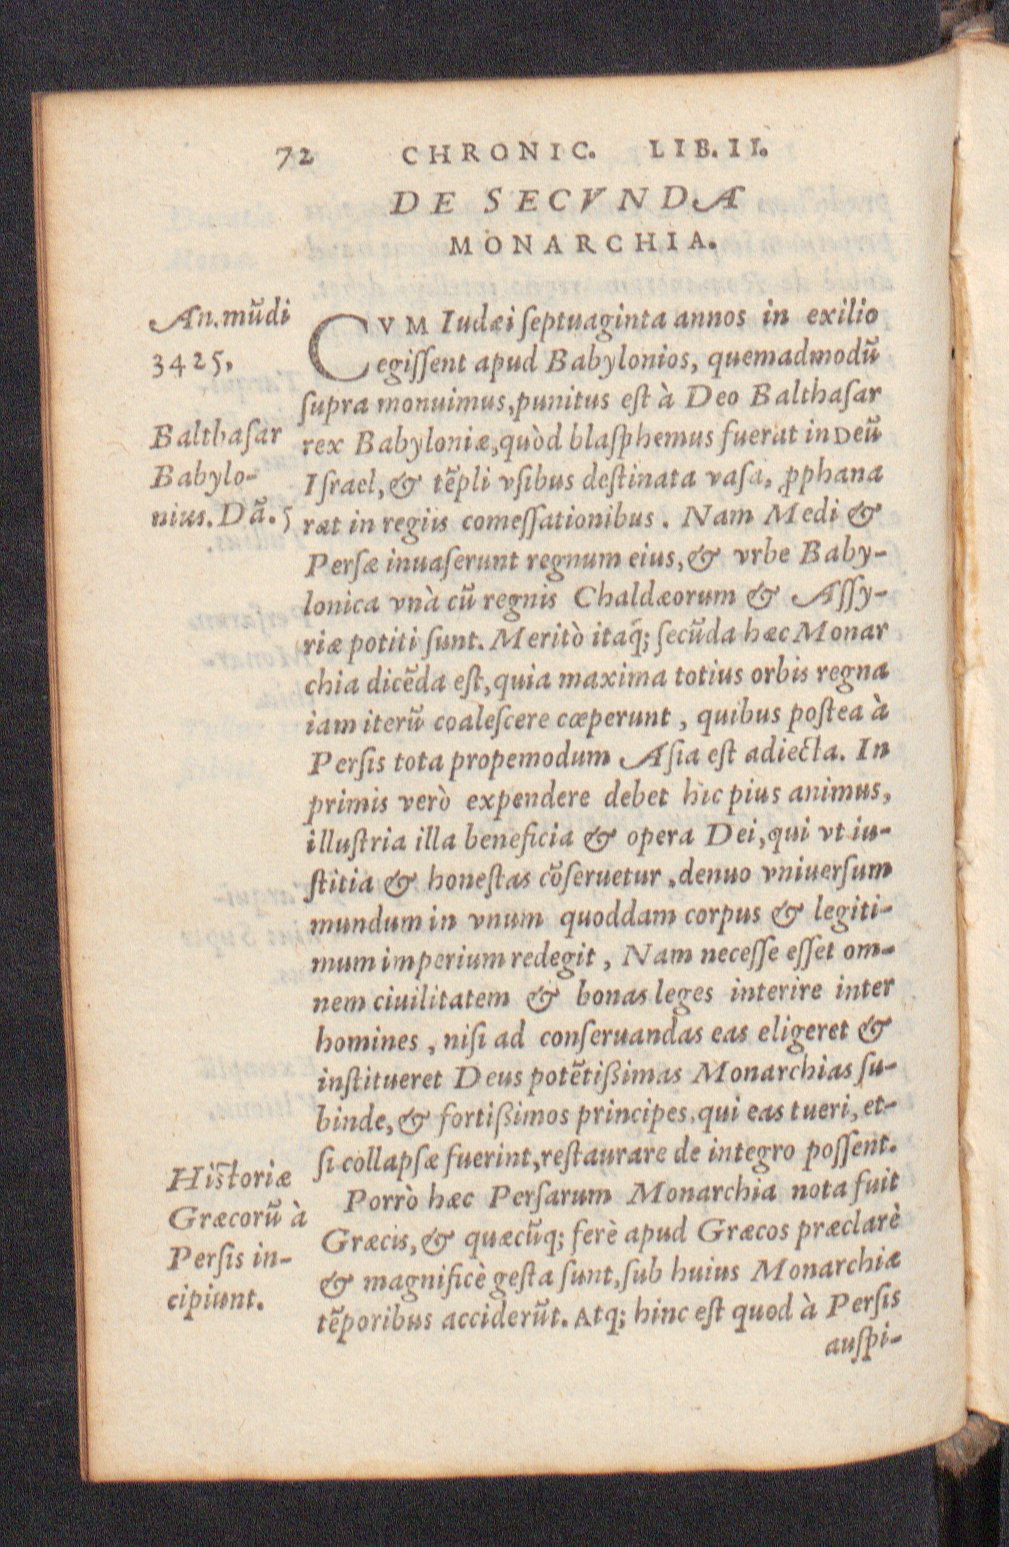 72 CHRONIC. LIB. II.
DE SECVNDA
MONARCHIA.
An. mũdi
3425.
Balthasar
Babylo-
nius. Dã. 5
CVM Iudæi septuaginta annos in exilio
egissent apud Babylonios, quemadmodũ
supra monuimus, punitus est à Deo Balthasar
rex Babyloniæ, quòd blasphemus fuerat in Deũ
Israel, & tẽpli vsibus destinata vasa, ꝓphana
rat in regiis comessationibus. Nam Medi &
Persæ inuaserunt regnum eius, & vrbe Baby-
lonica vnà cũ regnis Chaldæorum & Assy-
riæ potiti sunt. Meritò itaq́; secũda hæc Monar
chia dicẽda est, quia maxima totius orbis regna
iam iterũ coalescere cœperunt, quibus postea à
Persis tota propemodum Asia est adiecta. In
primis verò expendere debet hìc pius animus,
illustria illa beneficia & opera Dei, qui vt iu-
stitia & honestas cõseruetur, denuo vniuersum
mundum in vnum quoddam corpus & legiti-
mum imperium redegit, Nam necesse esset om-
nem ciuilitatem & bonas leges interire inter
homines, nisi ad conseruandas eas eligeret &
institueret Deus potẽtißimas Monarchias su-
binde, & fortißimos principes, qui eas tueri, et-
si collapsæ fuerint, restaurare de integro possent.
Historiæ
Græcorũ à
Persis in-
cipiunt.
Porrò hæc Persarum Monarchia nota fuit
Græcis, & quæcũq; ferè apud Græcos præclarè
& magnificè gesta sunt, sub huius Monarchiæ
tẽporibus acciderũt. Atq; hinc est quod à Persis
auspi-